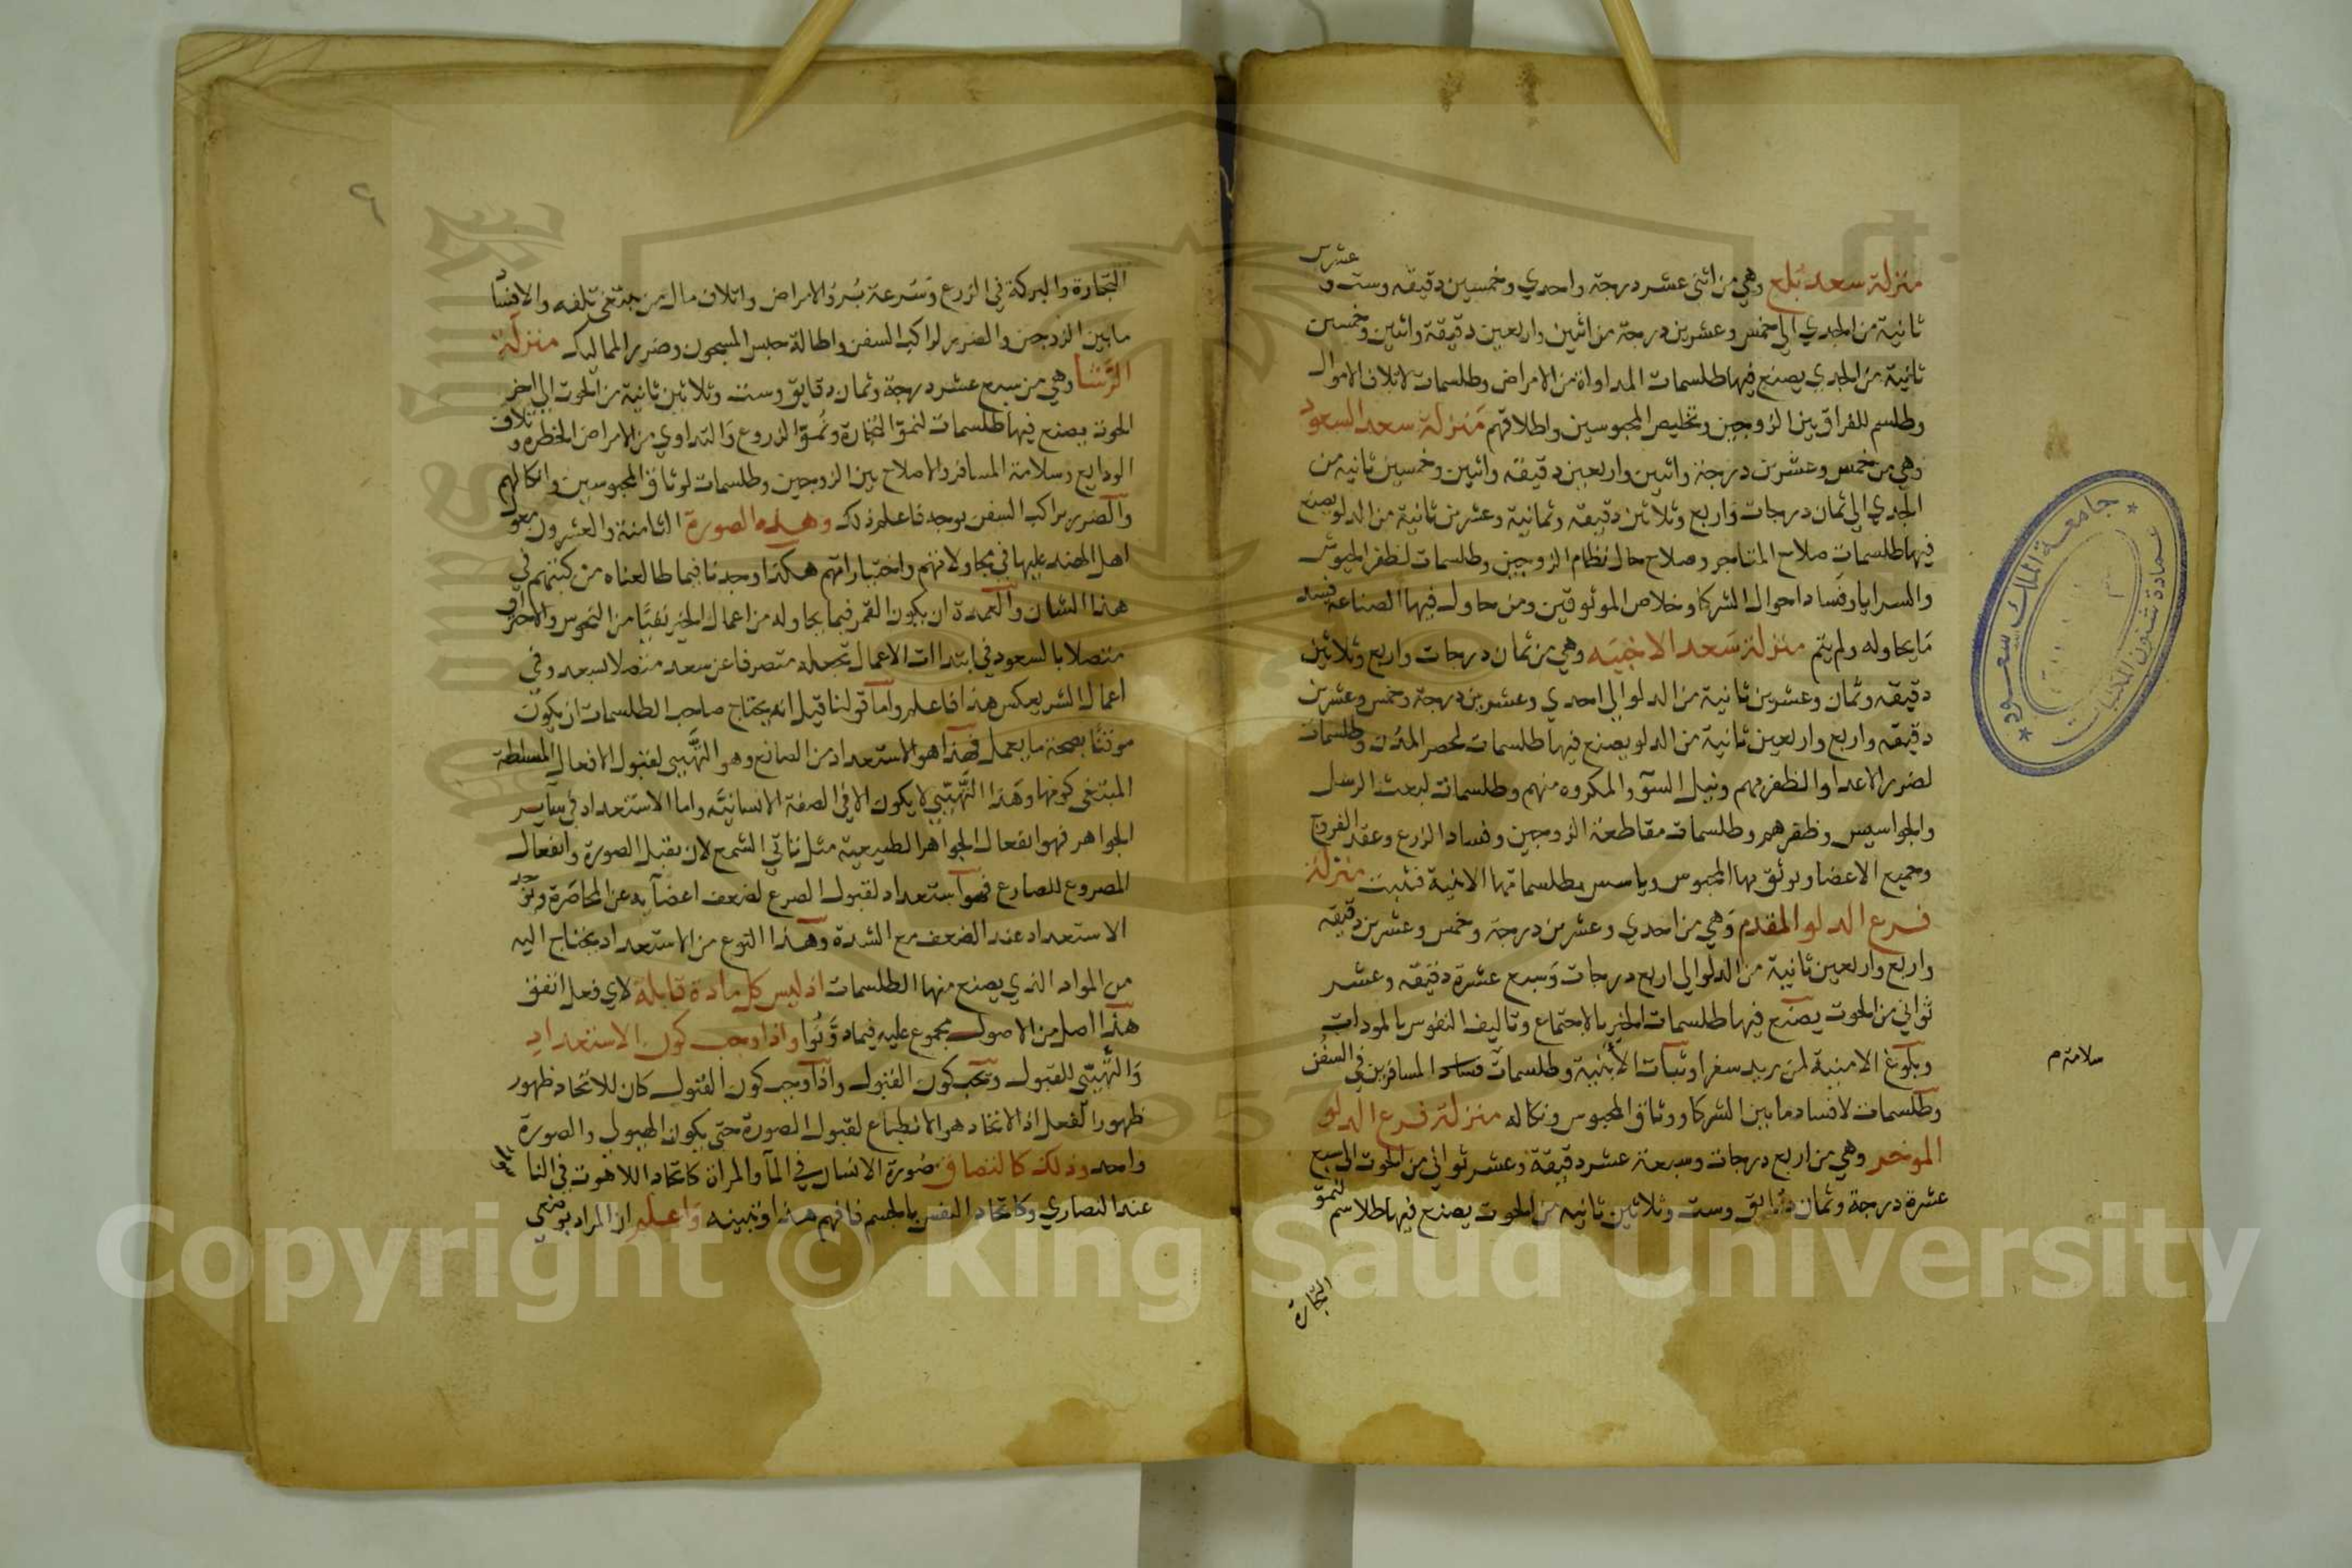 منزلة سعد بلع وهي من اثنى عشر درجة واحدي وخمسين دقيقه وست و
عشرين
ثانية من الجدي الي خمس وعشرين درجة من اثنين واربعين دقيقة واثنين وخمسين
ثانية من الجدي يصنع فيها طلسمات المداواة من الامراض وطلسمات لاتلاف الاموال
وطلسم للفراق بين الزوجين وتخليص المحبوسين واطلاقهم منزلة سعد السعود
وهي من خمس وعشرين درجة واثنين واربعين دقيقه واثنين وخمسين ثانيه من
الجدي الي ثمان درجات واربع وثلاثين دقيقه وثمانية وعشرين ثانية من الدلو يصنع
فيها طلسمات صلاح المتاجر وصلاح حال نظام الزوجين وطلسمات لظفر الجيوش
والسرايا وفساد احوال الشركا وخلاص الموثوقين ومن حاول فيها الصناعه فسد
ما يحاوله ولم يتم منزلة سعد الاخبيه وهي من ثمان درجات واربع وثلاثين
دقيقه وثمان وعشرين ثانية من الدلو الي احدي وعشرين درجة وخمس وعشرين
دقيقه واربع واربعين ثانية من الدلو يصنع فيها طلسمات لحصر المدن وطلسمات
لضرر الاعدا والظفر بهم ونيل السوٓ والمكروه منهم وطلسمات لبعث الرسل
والجواسيس وظفرهم وطلسمات مقاطعة الزوجين وفساد الزرع وعقد الفروج
وجميع الاعضا ويوثق بها المحبوس وياسس بطلسماتها الابنية فتثبت منزلة
فرع الدلو المقدم وهي من احدي وعشرين درجة وخمس وعشرين دقيقه
واربع واربعين ثانية من الدلو الي اربع درجات وسبع عشرة دقيقه وعشر
ثواني من الحوت يصنع فيها طلسمات الخير بالاجتماع وتاليف النفوس بالمودات
وبلوغ الامنية لمن يريد سفرا وثبات الابنية وطلسمات فساد المسافرين في السفن
سلامة م
وطلسمات لافساد ما بين الشركا ووثاق المحبوس ونكاله منزلة فرع الدلو
الموخر وهي من اربع درجات وسبعة عشر دقيقة وعشر ثواني من الحوت الي سبع
عشرة درجة وثمان دقايق وست وثلاثين ثانيه من الحوت يصنع فيها طلاسم لنمو
التجارة
جامعة الملك سعود
عمادة شئون المكتبات
التجارة والبركة في الزرع وسرعة برؤ الامراض واتلاف مال من يبتغي تلفه والافساد
ما بين الزوجين والضرر لراكب السفن واطالة حبس المسجون وضرر المماليك منزلة
الرشا وهي من سبع عشر درجة وثمان دقايق وست وثلاثين ثانية من الحوت الي اخر
الحوت يصنع فيها طلسمات لنمو التجارة ونمو الزروع والتداوي من الامراض الخطرة وتلاف
الودايع وسلامة المسافر والاصلاح بين الزوجين وطلسمات لوثاق المحبوسين وانكالهم
والضرر براكب السفن يوجد فاعلم ذلك وهذه الصورة الثامنة والعشرون معول
اهل الهند عليها في مجاولاتهم واختياراتهم هكذا وجدنا فيما طالعناه من كتبهم في
هذا الشان والعمدة ان يكون القمر فيما يحاوله من اعمال الخير نقيا من النحوس والاحتراق
متصلا بالسعود في ابتداات الاعمال تجعله متصرفا عن سعد متصلا بسعد وفي
اعمال الشر بعكس هذا فاعلم واما قولنا قيل انه يحتاج صاحب الطلسمات ان يكون
موقنا بصحة ما يعمل فهذا هو الاستعداد من الصانع وهو التهيي لقبول الافعال المسلطة
المبتغى كونها وهذا التهيي لا يكون الا في الصفة الانسانيه واما الاستعداد في ساير
الجواهر فهو انفعال الجواهر الطبيعية مثل تاتي الشمع لان يقبل الصورة وانفعال
المصروع للصارع فهو استعداد لقبول الصرع لضعف اعضايه عن المحاضرة ويوجد
الاستعداد عند الضعف مع الشدة وهذا النوع من الاستعداد يحتاج اليه
من المواد الذي يصنع منها الطلسمات اذ ليس كل مادة قابلة لاي فعل اتفق
هذا اصل من الاصول مجموع عليه فيما دونوا واذا وجب كون الاستعداد
والتهيي للقبول وجب كون القبول واذا وجب كون القبول كان للاتحاد ظهور
ظهور الفعل اذ الاتحاد هو الانطباع لقبول الصورة حتى يكون الهيولي والصورة
واحد وذلك كالتصاق صورة الانسان في الما والمراة كاتحاد اللاهوت في النا
عند النصاري وكاتحاد النفس بالجسم فافهم هذا وتبينه واعلم ان المراد بوضعي
Copyright © King Saud University
1957